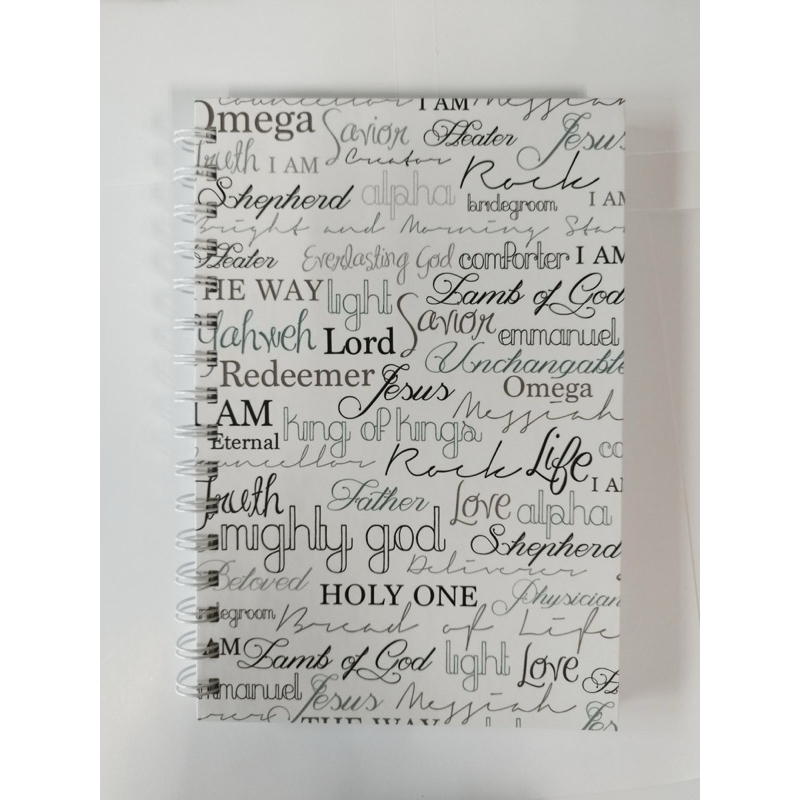 Councellor I AM Messiah
Omega Savior Healer Jesus
Truth I AM Creator Rock
Shepherd alpha bridegroom I AM
Bright and Morning Star
Healer Everlasting God comforter I AM
THE WAY light Lamb of God
Yahweh Lord Savior emmanuel
Unchangable
Redeemer Jesus Omega
I AM king of kings Messiah
Eternal
Councellor Rock Life
I AM
Truth Father Love alpha
mighty god Shepherd
Deliverer
Beloved HOLY ONE Physician
bridegroom Bread of Life
AM Lamb of God light Love
emmanuel Jesus Messiah
THE WAY